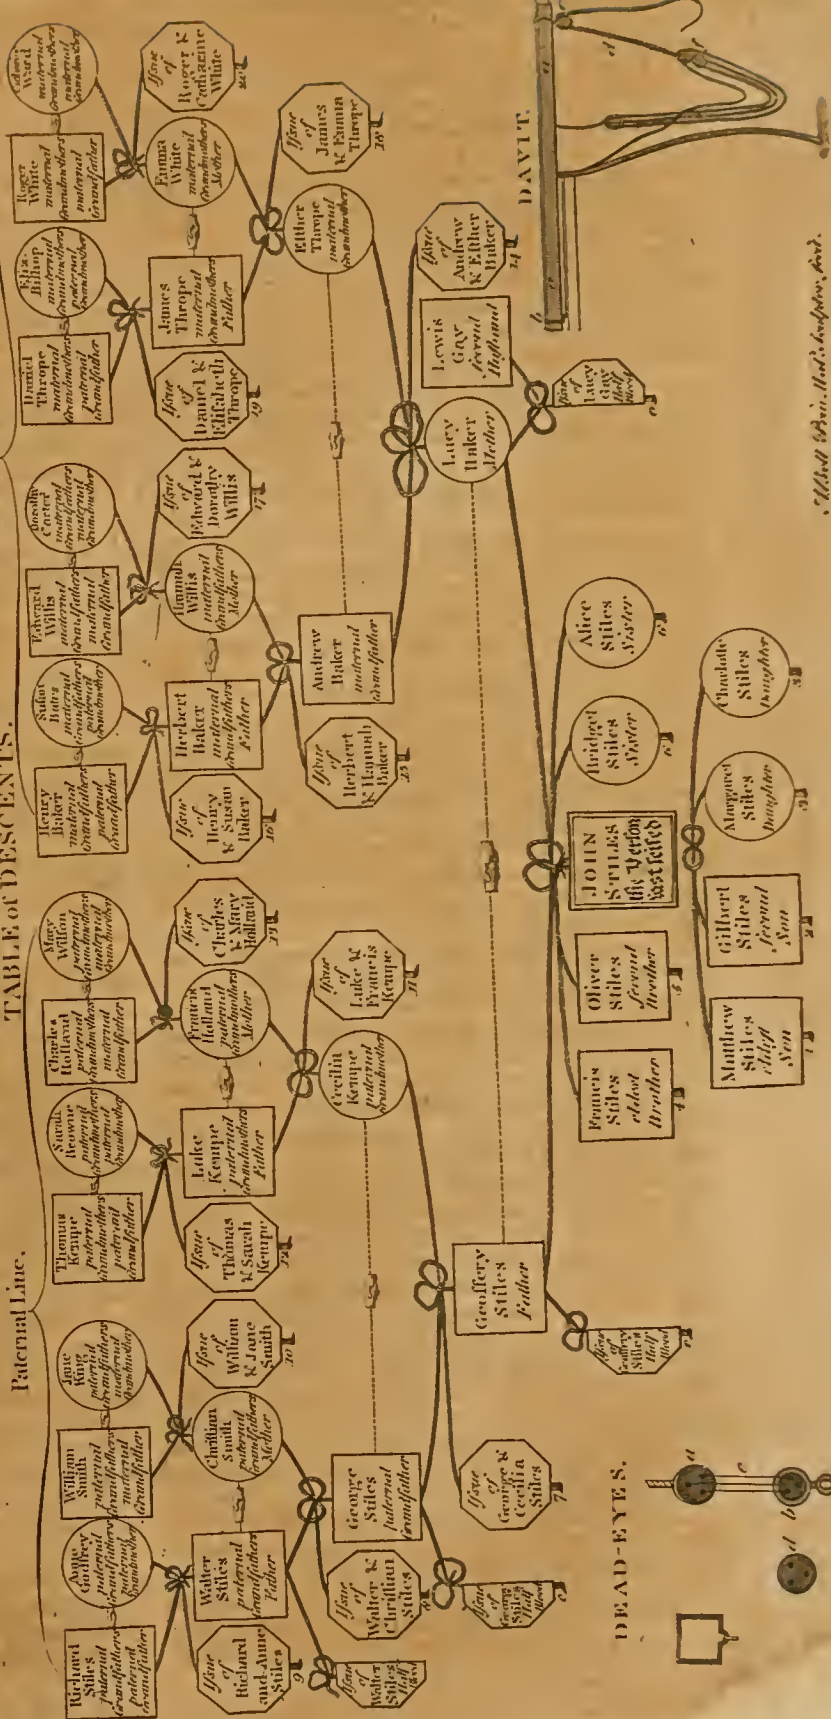 TABLE of DESCENTS.
Paternal Line.
Richard
Stiles
paternal
Grandfathers
paternal
Grandfather
Anne
Godfrey
paternal
Grandfathers
paternal
Grandmother
William
Smith
paternal
Grandfathers
maternal
Grandfather
Jane
King
paternal
Grandfathers
maternal
Grandmother
Thomas
Kempe
paternal
Grandmothers
paternal
Grandfather
Sarah
Browne
paternal
Grandmothers
paternal
Grandmother
Charles
Holland
paternal
Grandmothers
maternal
Grandfather
Mary
Wilſon
paternal
Grandmothers
maternal
Grandmother
Henry
Baker
maternal
Grandfathers
paternal
Grandfather
Suſan
Bates
maternal
Grandfathers
paternal
Grandmother
Edward
Willis
maternal
Grandfathers
maternal
Grandfather
Dorothy
Carter
maternal
Grandfathers
maternal
Grandmother
Daniel
Thrope
maternal
Grandmothers
paternal
Grandfather
Eliz.
Biſhop
maternal
Grandmothers
paternal
Grandmother
Roger
White
maternal
Grandmothers
maternal
Grandfather
Ward
maternal
Grandmothers
maternal
Grandmother
Iſsue
of
Richard
and Anne
Stiles
9
Walter
Stiles
paternal
Grandfathers
Father
Chriſtian
Smith
paternal
Grandfathers
Mother
Iſsue
of
William
& Jane
Smith
10
Iſsue
of
Thomas
& Sarah
Kempe
12
Luke
Kempe
paternal
Grandmothers
Father
Francis
Holland
paternal
Grandmothers
Mother
Iſsue
of
Charles
& Mary
Holland
13
Iſsue
of
Henry
& Suſan
Baker
16
Herbert
Baker
maternal
Grandfathers
Father
Hannah
Willis
maternal
Grandfathers
Mother
Iſsue
of
Edward &
Dorothy
Willis
17
Iſsue
of
Daniel &
Eliſabeth
Thrope
19
James
Thrope
maternal
Grandmothers
Father
Emma
White
maternal
Grandmothers
Mother
Iſsue
of
Roger &
Catharine
White
20
Iſsue
of
Walter
Stiles
Half
Blood
Iſsue
of
Walter &
Chriſtian
Stiles
8
George
Stiles
paternal
Grandfather
Cecilia
Kempe
paternal
Grandmother
Iſsue
of
Luke &
Francis
Kempe
11
Iſsue
of
Herbert
& Hannah
Baker
15
Andrew
Baker
maternal
Grandfather
Eſther
Thrope
maternal
Grandmother
Iſsue
of
James
& Emma
Thrope
18
Iſsue
of
George
Stiles
Half
Blood
Iſsue
of
George &
Cecilia
Stiles
7
Geoffery
Stiles
Father
Lucy
Baker
Mother
Lewis
Gay
ſecond
Huſband
Iſsue
of
Andrew
& Eſther
Baker
14
Iſsue
of
Geoffery
Stiles
Half
Blood
Iſsue
of
Lucy
Gay
Half
Blood
Francis
Stiles
eldeſt
Brother
4
Oliver
Stiles
ſecond
Brother
5
JOHN
STILES
the Perſon
laſt ſeiſed
Bridget
Stiles
Siſter
6
Alice
Stiles
Siſter
6
Matthew
Stiles
eldeſt
Son
1
Gilbert
Stiles
ſecond
Son
2
Margaret
Stiles
Daughter
3
Charlotte
Stiles
Daughter
3
DEAD-EYES.
a
c
b
d
DAVIT.
a
b
d
A. Bell Prin. Wal. Sculptor fecit.